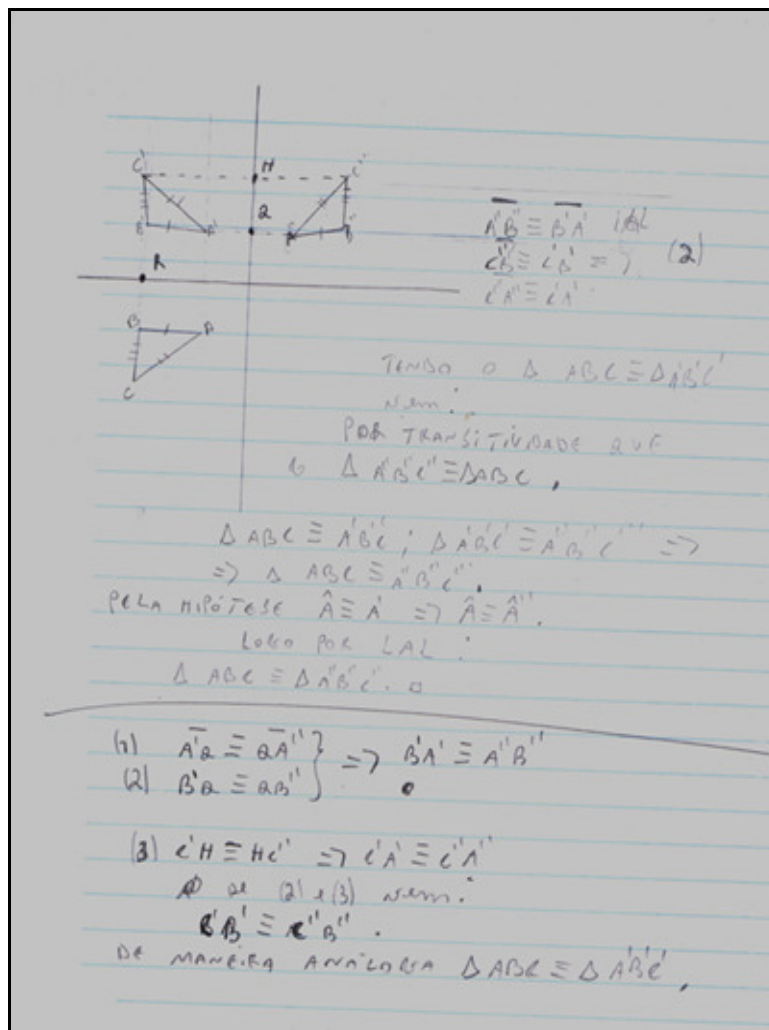 C' H C''
B' A' Q A'' B''
R
B A
C
A''B'' ≡ B'A'
C''B'' ≡ C'B' => (2)
C''A'' ≡ C'A'
TENDO O Δ ABC ≡ ΔA'B'C'
vem:
POR TRANSITIVIDADE QUE
Δ A''B''C'' ≡ ΔABC,
Δ ABC ≡ A'B'C'; Δ A'B'C' ≡ A''B''C''' =>
=> Δ ABC ≡ A''B''C''.
PELA HIPÓTESE Â ≡ A' => Â ≡ Â''.
LOGO POR LAL:
Δ ABC ≡ Δ A''B''C''. □
(1) A'Q ≡ QA'' } => B'A' ≡ A''B''
(2) B'Q ≡ QB''
(3) C'H ≡ HC'' => C'A' ≡ C''A''
de (2) e (3) vem:
C'B' ≡ C''B''.
DE MANEIRA ANÁLOGA Δ ABC ≡ Δ A'B'C',